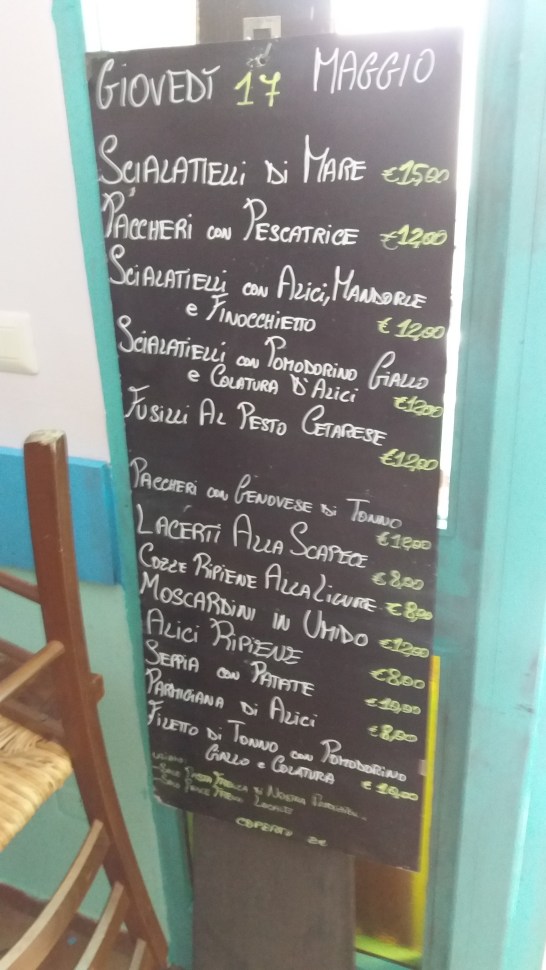 GIOVEDÌ 17 MAGGIO
SCIALATIELLI DI MARE €15,00
PACCHERI CON PESCATRICE €12,00
SCIALATIELLI CON ALICI, MANDORLE
e FINOCCHIETTO € 12,00
SCIALATIELLI CON POMODORINO GIALLO
e COLATURA D'ALICI €12,00
FUSILLI AL PESTO CETARESE
€12,00
PACCHERI CON GENOVESE DI TONNO
LACERTI ALLA SCAPECE
COZZE RIPIENE ALLA LIGURE €8,00
MOSCARDINI IN UMIDO €12,00
ALICI RIPIENE €8,00
SEPPIA CON PATATE €10,00
PARMIGIANA DI ALICI €8,00
FILETTO DI TONNO CON POMODORINO
GIALLO e COLATURA
COPERTO